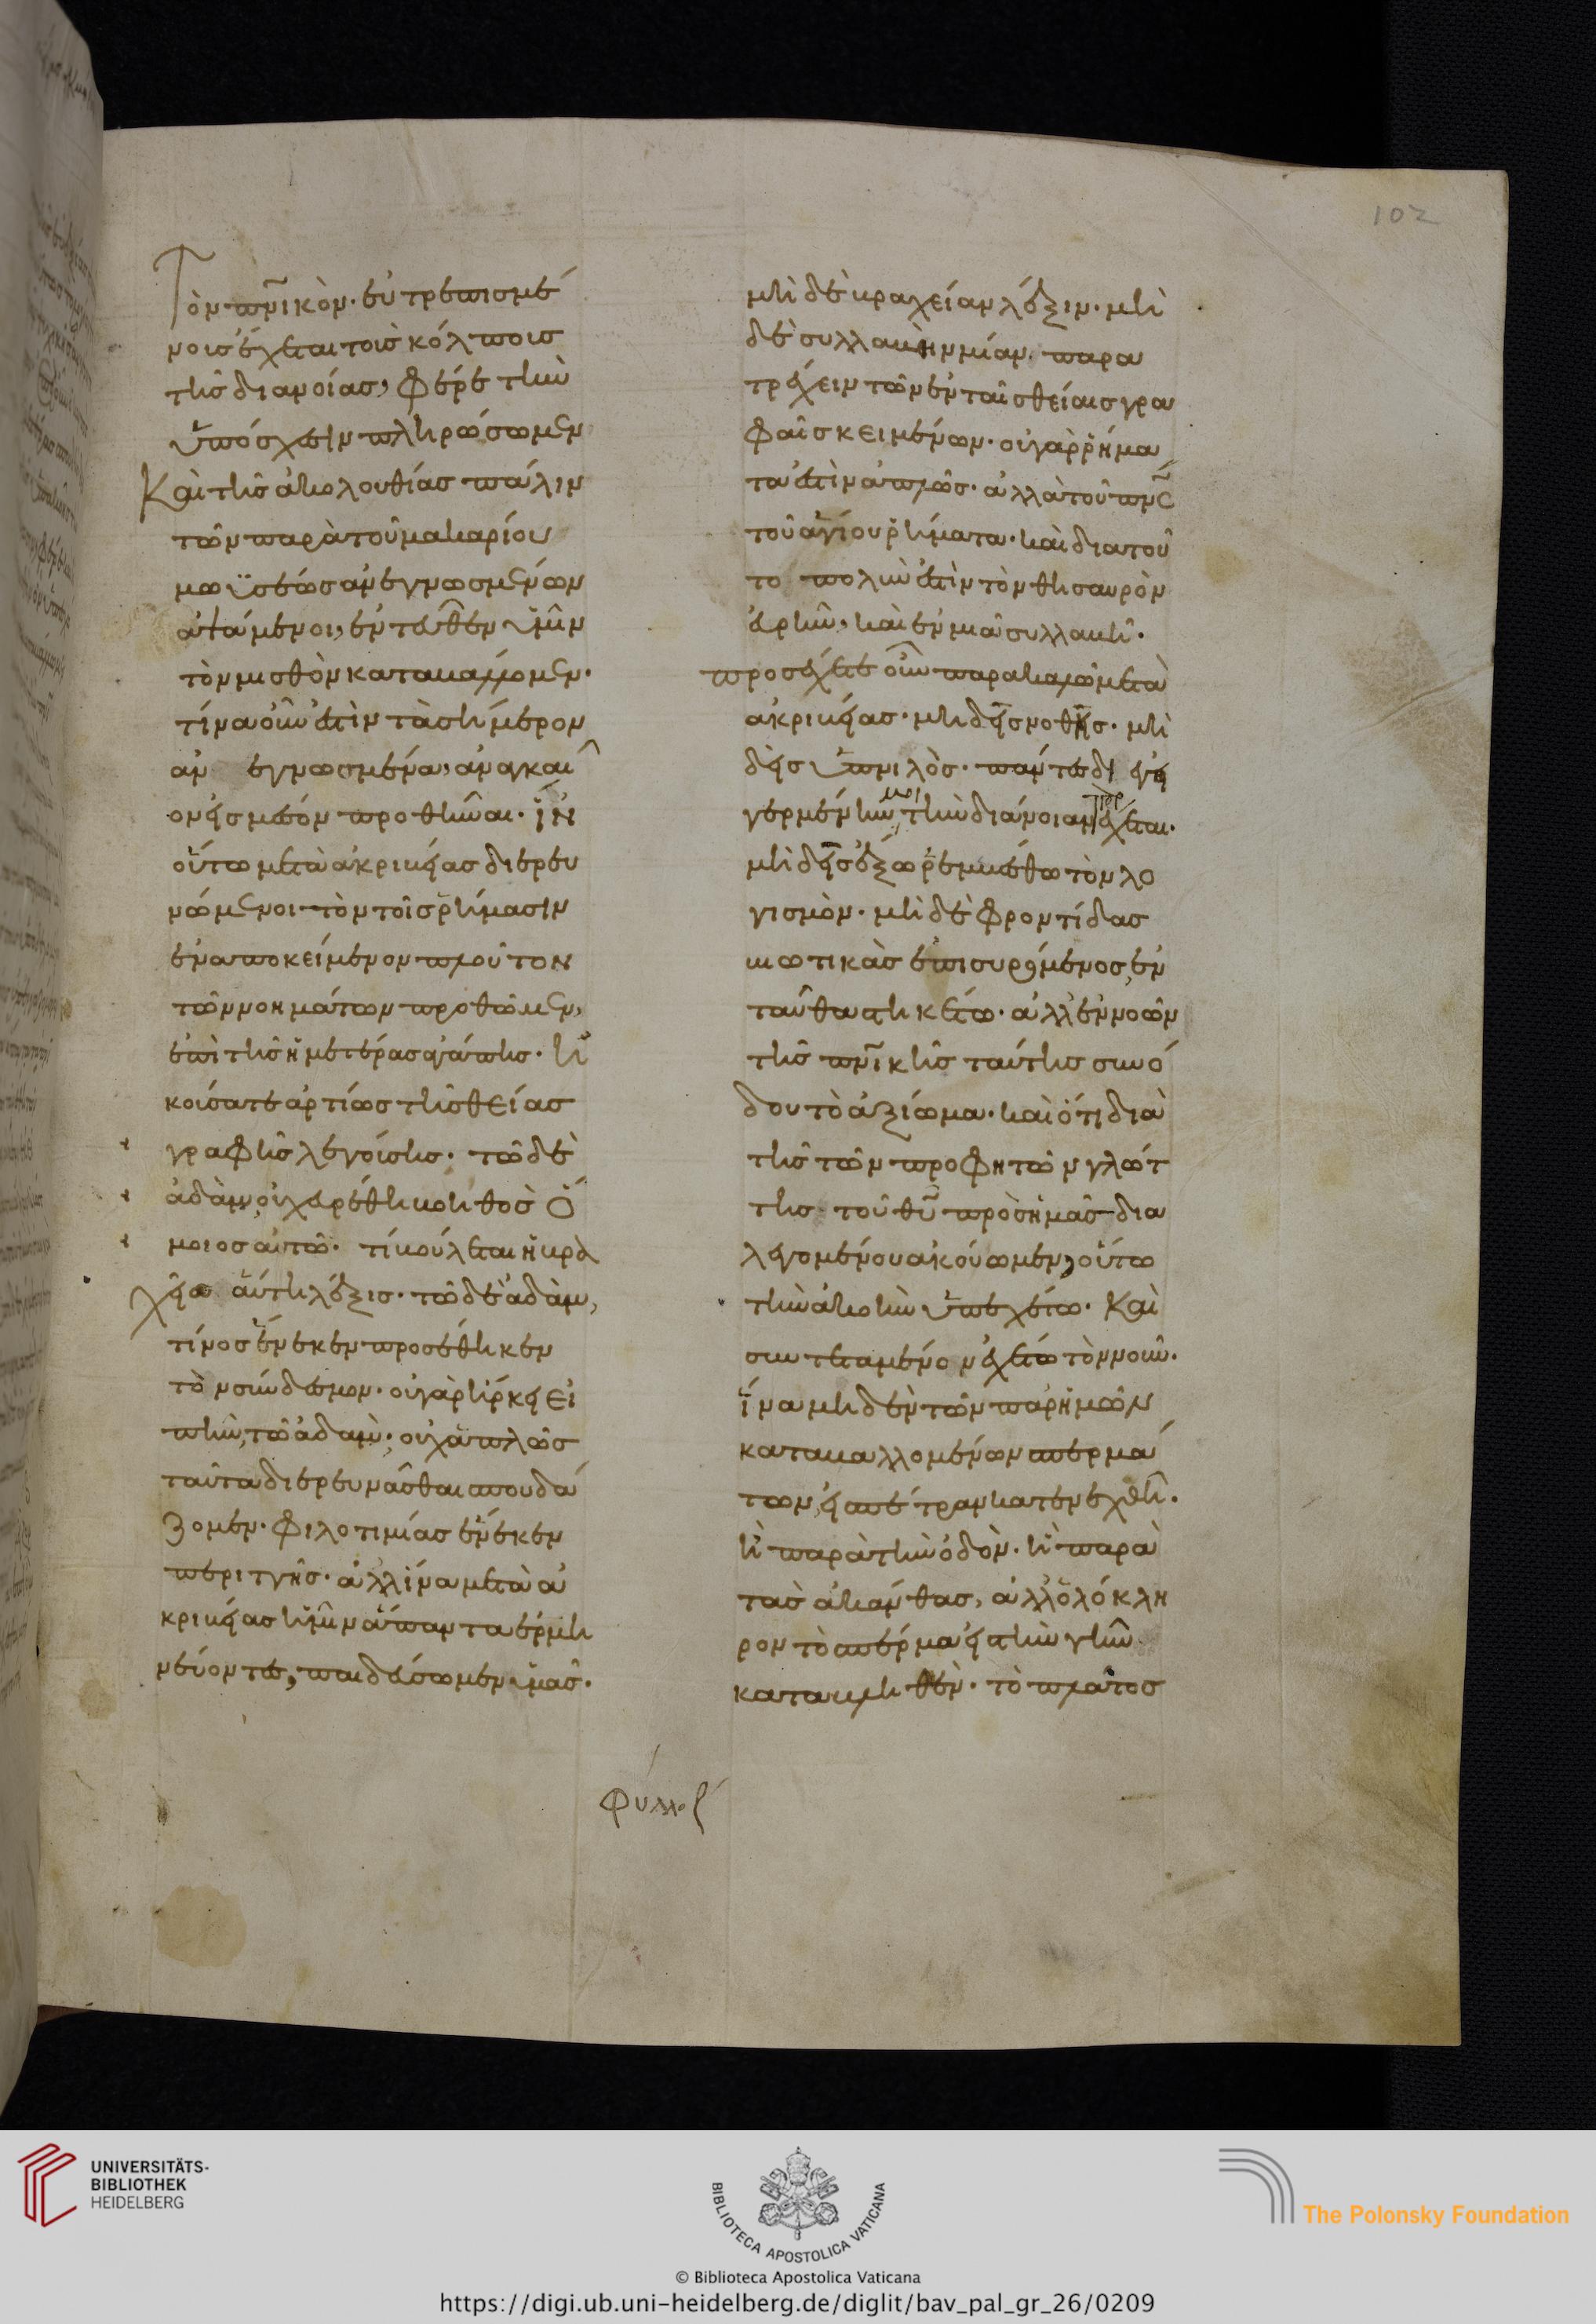 102
Τὸν πνικὸν· εὐτρεπισμέ
νοις ἔχεται τοῖς κόλποις
τῆς διανοίας, φέρε τὴν
ὑπόσχεσιν πληρώσωμεν
Καὶ τῆς ἀκολουθίας πάλιν
τῶν παρὰ τοῦ μακαρίου
μωϋσέως ἀνεγνωσμένων
ἁψάμενοι, ἐντεῦθεν ὑμῖν
τὸν μισθὸν καταβάλλομεν·
τίνα οὖν ἐστὶν τὰ σήμερον
ἀνεγνωσμένα, ἀναγκαῖ
ον εἰς μέσον προθῆναι· ἵν
οὕτω μετὰ ἀκριβείας διερευ
νώμενοι τὸν τοῖς ῥήμασιν
ἐναποκείμενον πλοῦτον
τῶν νοημάτων προθῶμεν,
ἐπὶ τῆς ἡμετέρας ἀγάπης· ἠ
κούσατε ἀρτίως τῆς θείας
γραφῆς λεγούσης· τῶ δὲ
ἀδὰμ, οὐχ εὑρέθη βοηθὸς ὅ
μοιος αὐτῶ· τί βούλεται ἡ βρα
χεῖα αὕτη λέξις· τῶ δὲ ἀδὰμ,
τίνος ἕνεκεν προσέθηκεν
τὸν σύνδεσμον· οὐ γὰρ ἤρκει εἰ
πεῖν, τῶ ἀδὰμ· οὐχ ἁπλῶς
ταῦτα διερευνᾶσθαι σπουδά
ζομεν· φιλοτιμίας ἕνεκεν
περιττῆς· ἀλλ ἵνα μετὰ ἀ
κριβείας ὑμῖν ἅπαντα ἑρμη
νεύοντες, παιδεύσωμεν ὑμᾶς·
μὴ δὲ βραχεῖαν λέξιν· μὴ
δὲ συλλαβὴν μίαν· παρα
τρέχειν τῶν ἐν ταῖς θείαις γρα
φαῖς κειμένων· οὐ γὰρ ῥήμα
τα ἐστὶν ἁπλῶς· ἀλλὰ τοῦ πνς
τοῦ ἁγίου ῥήματα· καὶ διὰ τοῦ
το πολὺν ἐστὶν τὸν θησαυρὸν
εὑρεῖν, καὶ ἐν μιᾶ συλλαβῆ·
προσέχετε οὖν παρακαλῶ μετὰ
ἀκριβείας· μηδεὶς νοθὴς· μη
δεὶς ὑπνηλὸς· πάντες δι ε
γερμένην μοι τὴν διάνοιαν παρεχεται·
μηδεὶς ἔξω ῥεμβέσθω τὸν λο
γισμὸν· μὴ δὲ φροντίδας
βιωτικὰς ἐπισυρόμενος ἐν
ταῦθα στηκέτω· ἀλλ ἐννοῶν
τῆς πνικῆς ταύτης συνό
δου τὸ ἀξίωμα· καὶ ὅτι διὰ
τῆς τῶν προφητῶν γλώτ
της τοῦ θυ πρὸς ἡμᾶς δια
λεγομένου ἀκούωμεν, οὕτω
τὴν ἀκοὴν ὑπεχέτω· Καὶ
συντεταμένον ἐχέτω τὸν νοῦν·
ἵνα μηδὲν τῶν παρ ἡμῶν
καταβαλλομένων σπερμά
των, εἰς πέτραν κατενεχθῆ·
ἢ παρὰ τὴν ὁδὸν· ἢ παρὰ
τὰς ἀκάνθας, ἀλλ ὁλόκλη
ρον τὸ σπέρμα εἰς τὴν γῆν
καταβληθὲν· τὸ πλάτος
φύλλ ζ
UNIVERSITÄTS-
BIBLIOTHEK
HEIDELBERG
BIBLIOTECA APOSTOLICA VATICANA
The Polonsky Foundation
© Biblioteca Apostolica Vaticana
https://digi.ub.uni-heidelberg.de/diglit/bav_pal_gr_26/0209